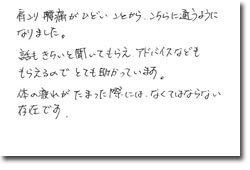 肩コリ 腰痛が ひどい ことから、こちらに通うように
なりました。
話も きちんと聞いてもらえ アドバイスなども
もらえるので とても助かっています。
体の疲れが たまった際には、なくてはならない
存在です.